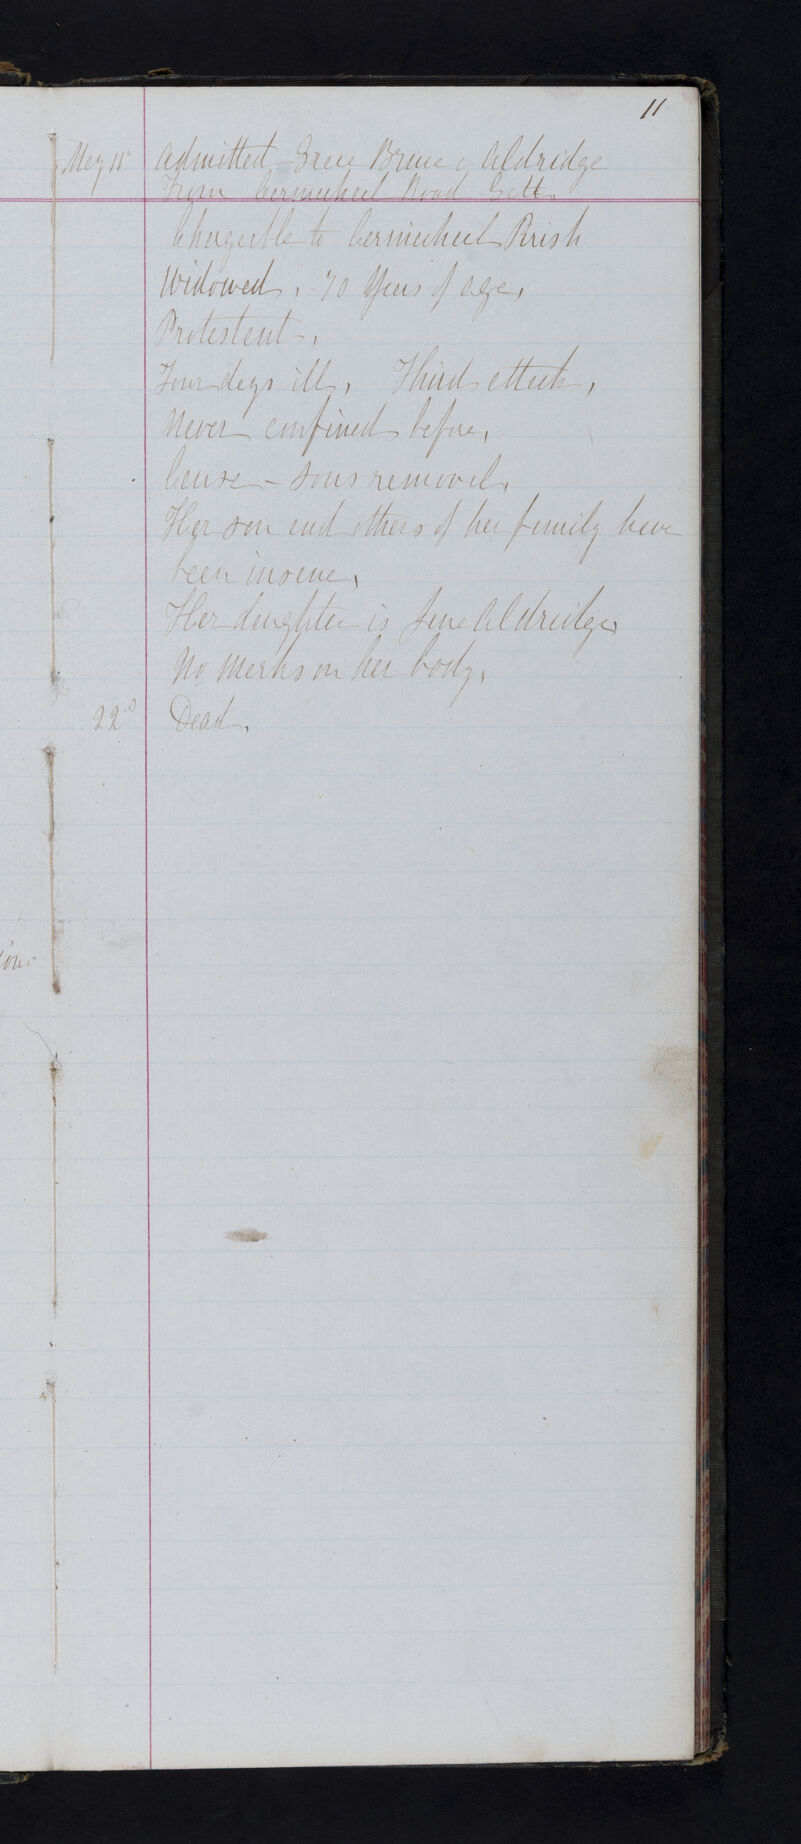 11
May 15 Admitted Grace Bruce or Aldridge
From Carmichael Road Gate
Chargeable to Carmichael Parish
Widowed, 70 Years of age,
Protestant,
Four days ill, Third attack,
Never confined before,
Cause – sons removal,
Her son and others of her family have
been insane,
Her daughter is Jane Aldridge
No marks on her body,
22 Dead,